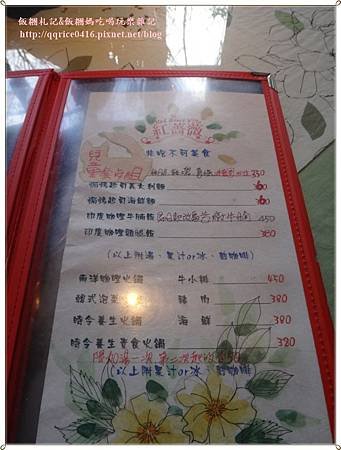 飯糰札記&飯糰媽吃喝玩樂雜記
http://qqrice0416.pixnet.net/blog
紅薔薇
非吃不可美食
兒童
350
焗烤 義大利麵 360
焗烤 海鮮麵 360
印度咖哩牛腩飯 450
印度咖哩 飯 380
(以上附湯、果汁or冰、熱咖啡)
南洋咖哩火鍋 牛小排 450
韓式泡菜 豬肉 380
時令養生火鍋 海鮮 380
時令養生素食火鍋 380
附加湯一次 第二次
(以上附果汁or冰、熱咖啡)